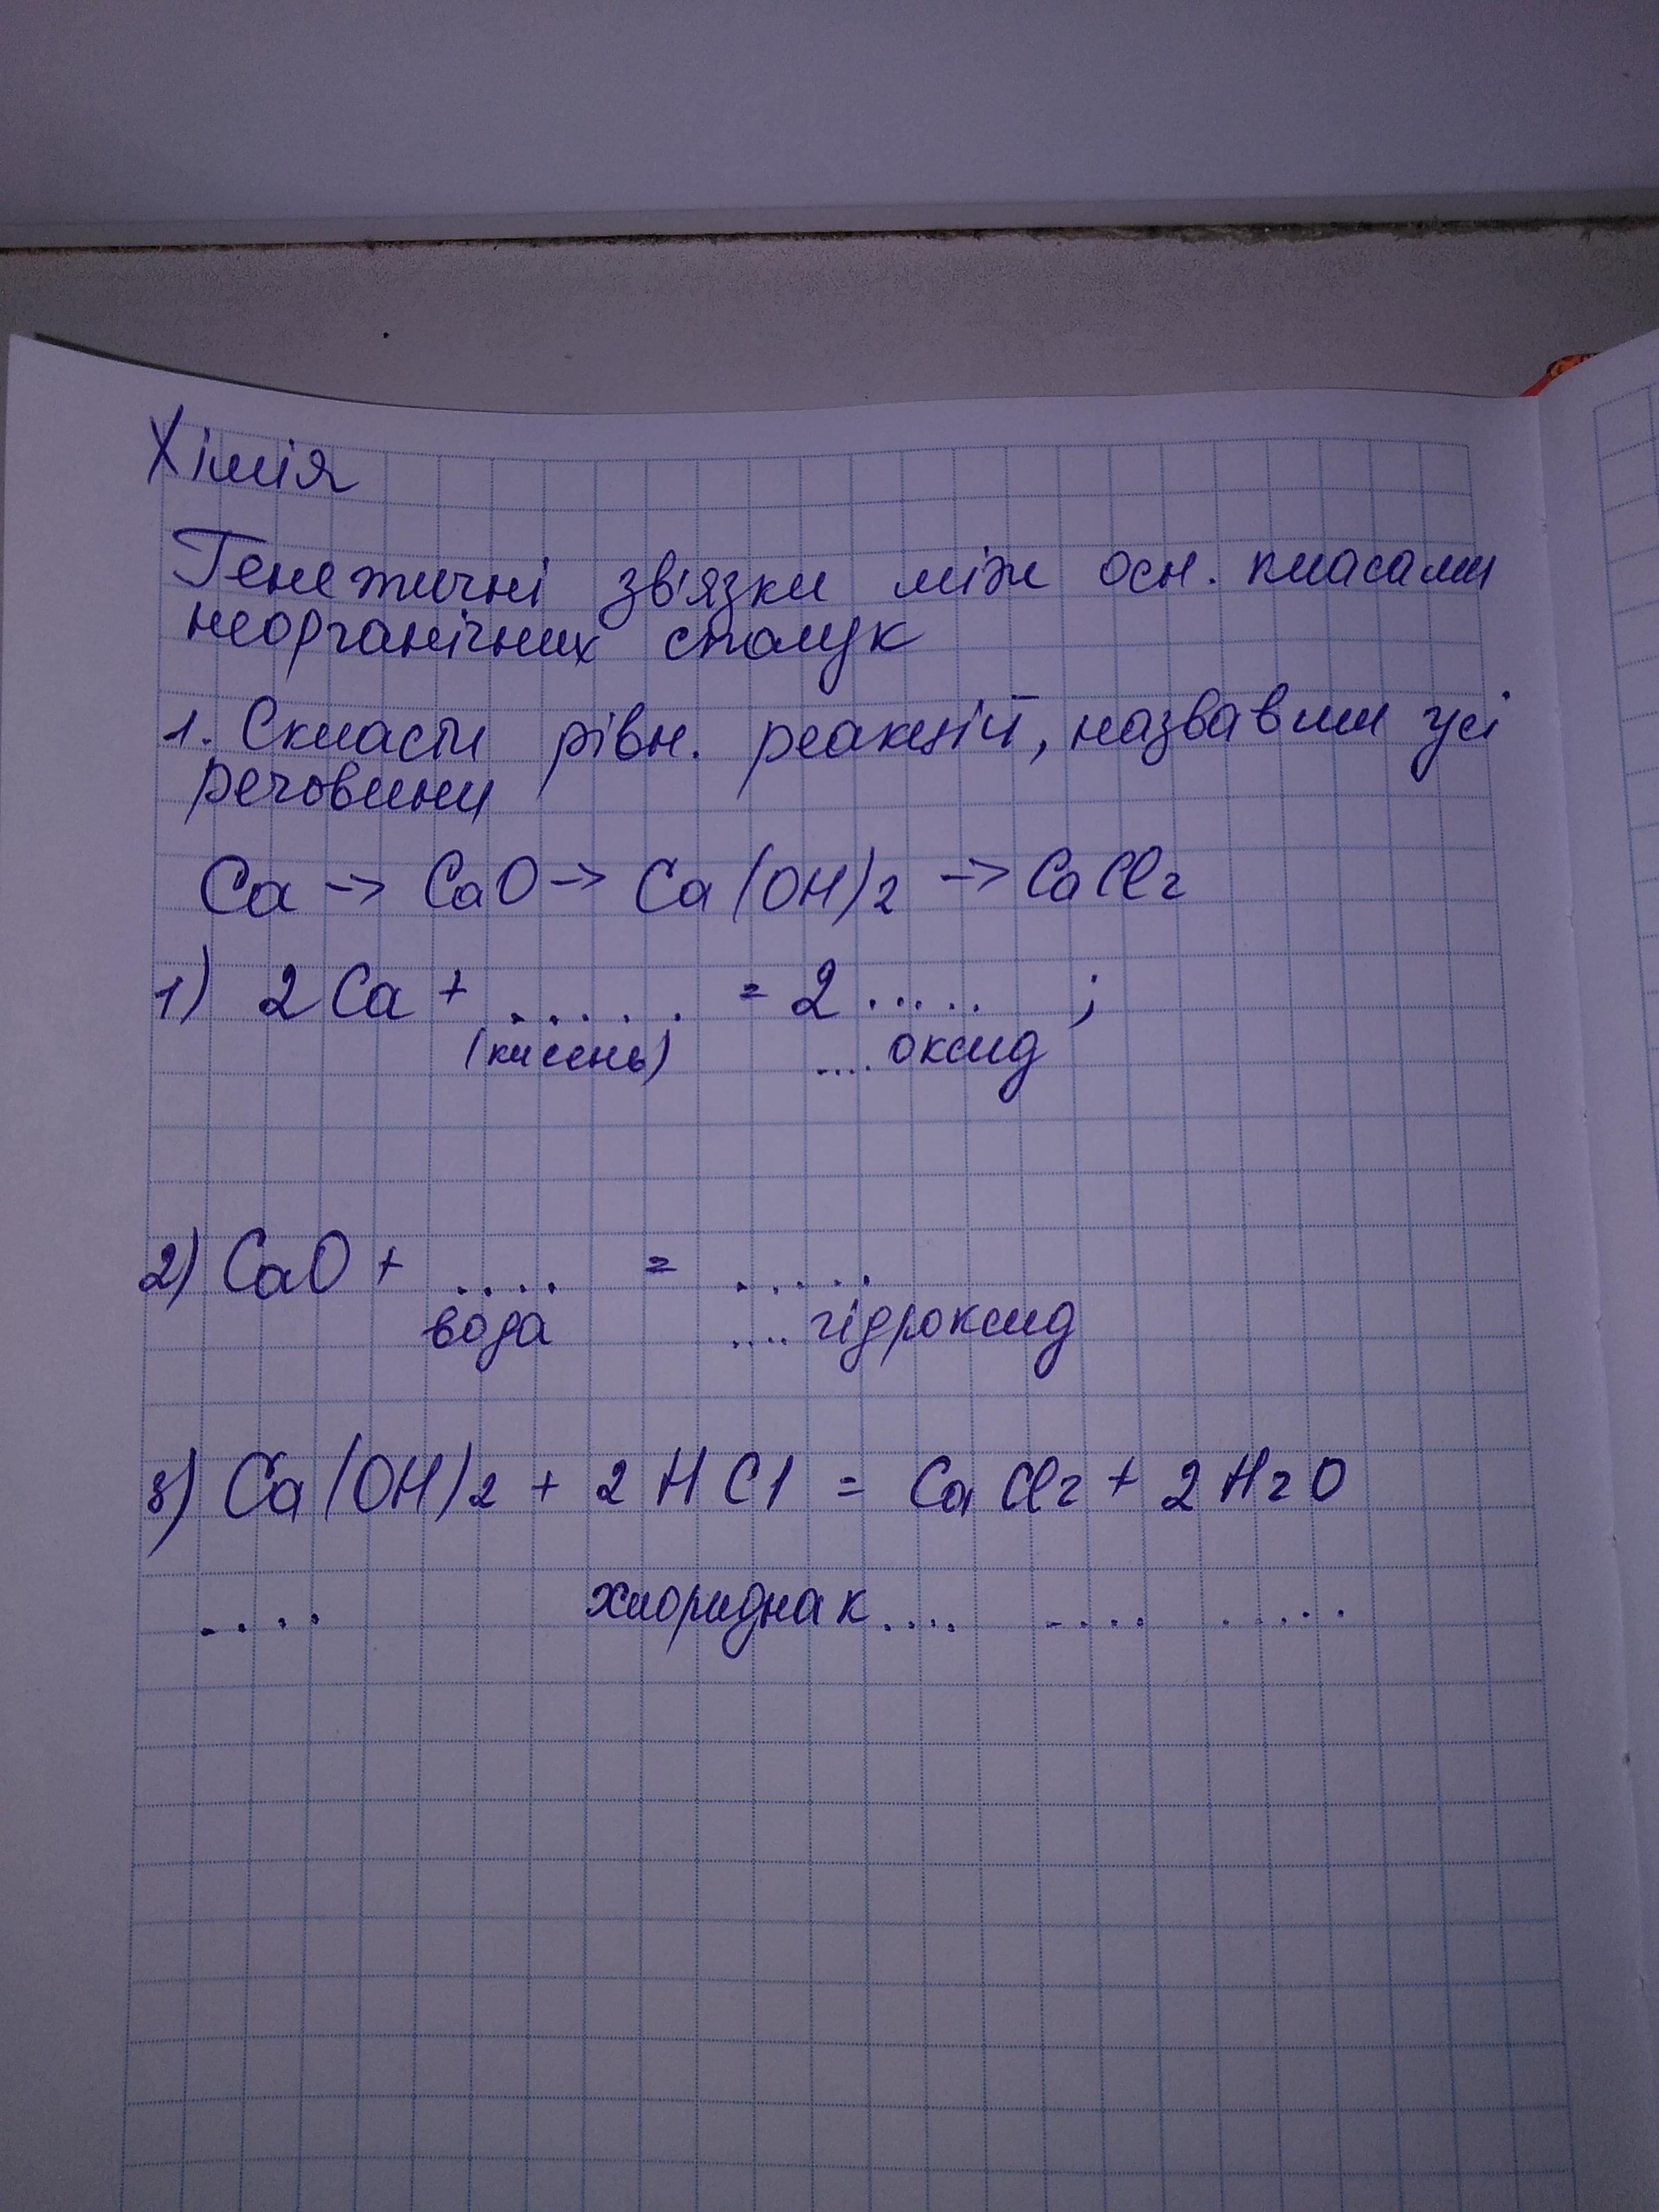 Хімія
Генетичні зв'язки між осн. класами
неорганічних сполук
1. Скласти рівн. реакцій, назвавши усі
речовини
Ca -> CaO -> Ca(OH)2 -> CaCl2
1) 2Ca + ...... = 2 ...... ;
(кисень) .... оксид
2) CaO + .... = .....
вода .... гідроксид
3) Ca(OH)2 + 2HCl = CaCl2 + 2H2O
.... хлоридна к .... .... .....